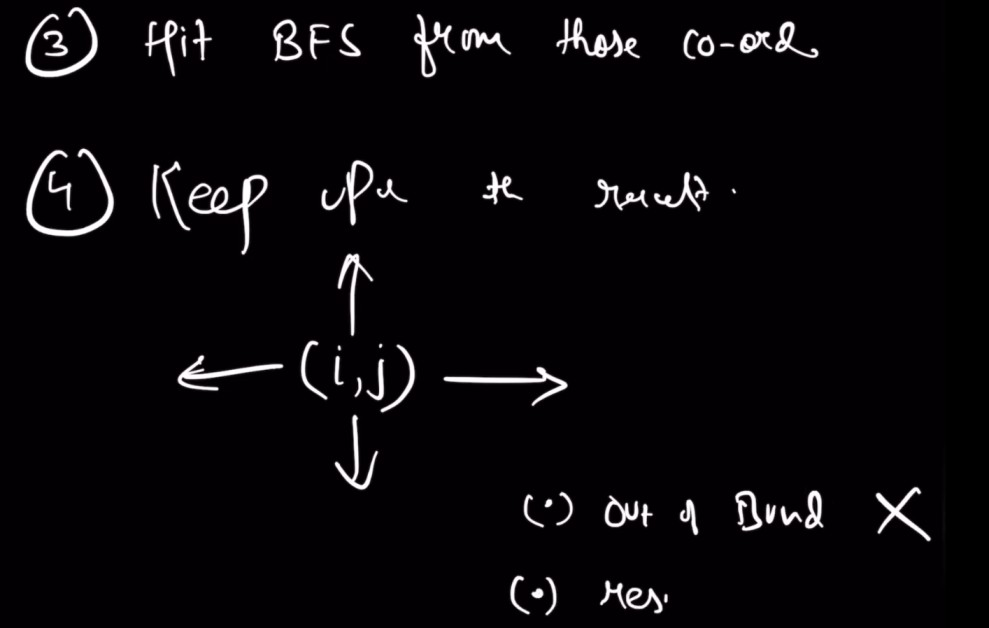 ③ Hit BFS from those co-ord
④ Keep the result.
(i,j)
(•) Out of Bund X
(•) res.